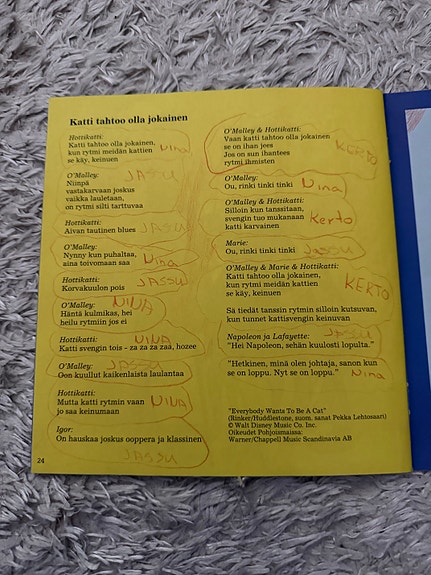 Katti tahtoo olla jokainen
Hottikatti:
Katti tahtoo olla jokainen,
kun rytmi meidän kattien
se käy, keinuen
Nina
O'Malley:
JASSU
Niinpä
vastakarvaan joskus
vaikka lauletaan,
on rytmi silti tarttuvaa
Hottikatti:
Aivan tautinen blues
JASSU
O'Malley:
Nynny kun puhaltaa,
aina toivomaan saa
Nina
Hottikatti:
Korvakuulon pois
JASSU
O'Malley:
NINA
Häntä kulmikas, hei
heilu rytmin jos ei
Hottikatti:
NINA
Katti svengin tois - za za za zaa, hozee
O'Malley:
JASSU
Oon kuullut kaikenlaista laulantaa
Hottikatti:
Mutta katti rytmin vaan
jo saa keinumaan
NINA
Igor:
On hauskaa joskus ooppera ja klassinen
JASSU
24
O'Malley & Hottikatti:
Vaan katti tahtoo olla jokainen
se on ihan jees
Jos on sun ihantees
rytmi ihmisten
KERTO
O'Malley:
Ou, rinki tinki tinki
Nina
O'Malley & Hottikatti:
Silloin kun tanssitaan,
svengin tuo mukanaan
katti karvainen
Kerto
Marie:
Ou, rinki tinki tinki
Jassu
O'Malley & Marie & Hottikatti:
Katti tahtoo olla jokainen,
kun rytmi meidän kattien
se käy, keinuen
KERTO
Sä tiedät tanssin rytmin silloin kutsuvan,
kun tunnet kattisvengin keinuvan
Napoleon ja Lafayette:
JASSU
"Hei Napoleon, sehän kuulosti lopulta."
"Hetkinen, minä olen johtaja, sanon kun
se on loppu. Nyt se on loppu."
Nina
"Everybody Wants To Be A Cat"
(Rinker/Huddlestone, suom. sanat Pekka Lehtosaari)
© Walt Disney Music Co. Inc.
Oikeudet Pohjoismaissa:
Warner/Chappell Music Scandinavia AB